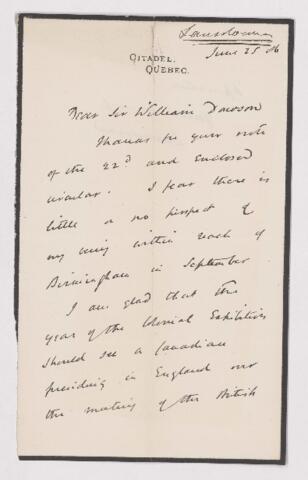 Lansdowne
June 25 86
CITADEL.
QUEBEC.
Dear Sir William Dawson
Thanks for your note
of the 22d and enclosed
circular. I fear there is
little or no prospect of
my being within reach of
Birmingham in September.
I am glad that the
year of the Colonial Exhibition
should see a Canadian
presiding in England over
the meeting of the British